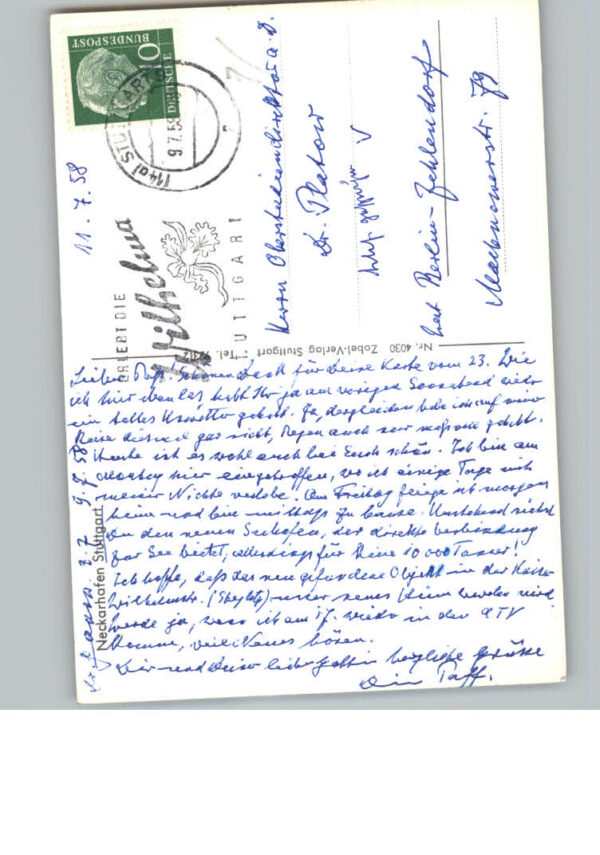 DEUTSCHE
BUNDESPOST
10
(14a) STUTTGART
9.7.58
ERLEBT DIE
Wilhelma
STUTTGART
11.7.58
Herrn Oberstudiendirektor a.D.
Dr. Platow
Berlin-Zehlendorf
Machnowerstr. 79
Nr. 4030 Zobel-Verlag Stuttgart Tel.
Neckarhafen Stuttgart
9.7.58
Lieber Schönen Dank für Deine Karte vom 23. Wie
ich hier las, habt Ihr ja am vorigen Sonnabend wieder
ein tolles Unwetter gehabt. Ja, dergleichen habe ich auf meiner
Reise diesmal gar nicht, Regen auch nur gehabt.
Heute ist es wohl auch bei Euch schön. Ich bin am
Montag hier eingetroffen, wo ich einige Tage mit
meiner Nichte verlebe. Am Freitag fliege ich morgens
heim und bin mittags zu Hause. Umstehend siehst
Du den neuen Seehafen, der direkte Verbindung
zur See bietet, allerdings für kleine 10 000 Tonner!
Ich hoffe, daß das neu gefundene Objekt in der Kaiser
Wilhelmstr. (Steglitz) unser neues Heim werden wird
werde ja, wenn ich am 17. wieder in den ATV
komme, viel Neues hören.
Dir und Deiner lieben Gattin herzliche Grüße
Dein